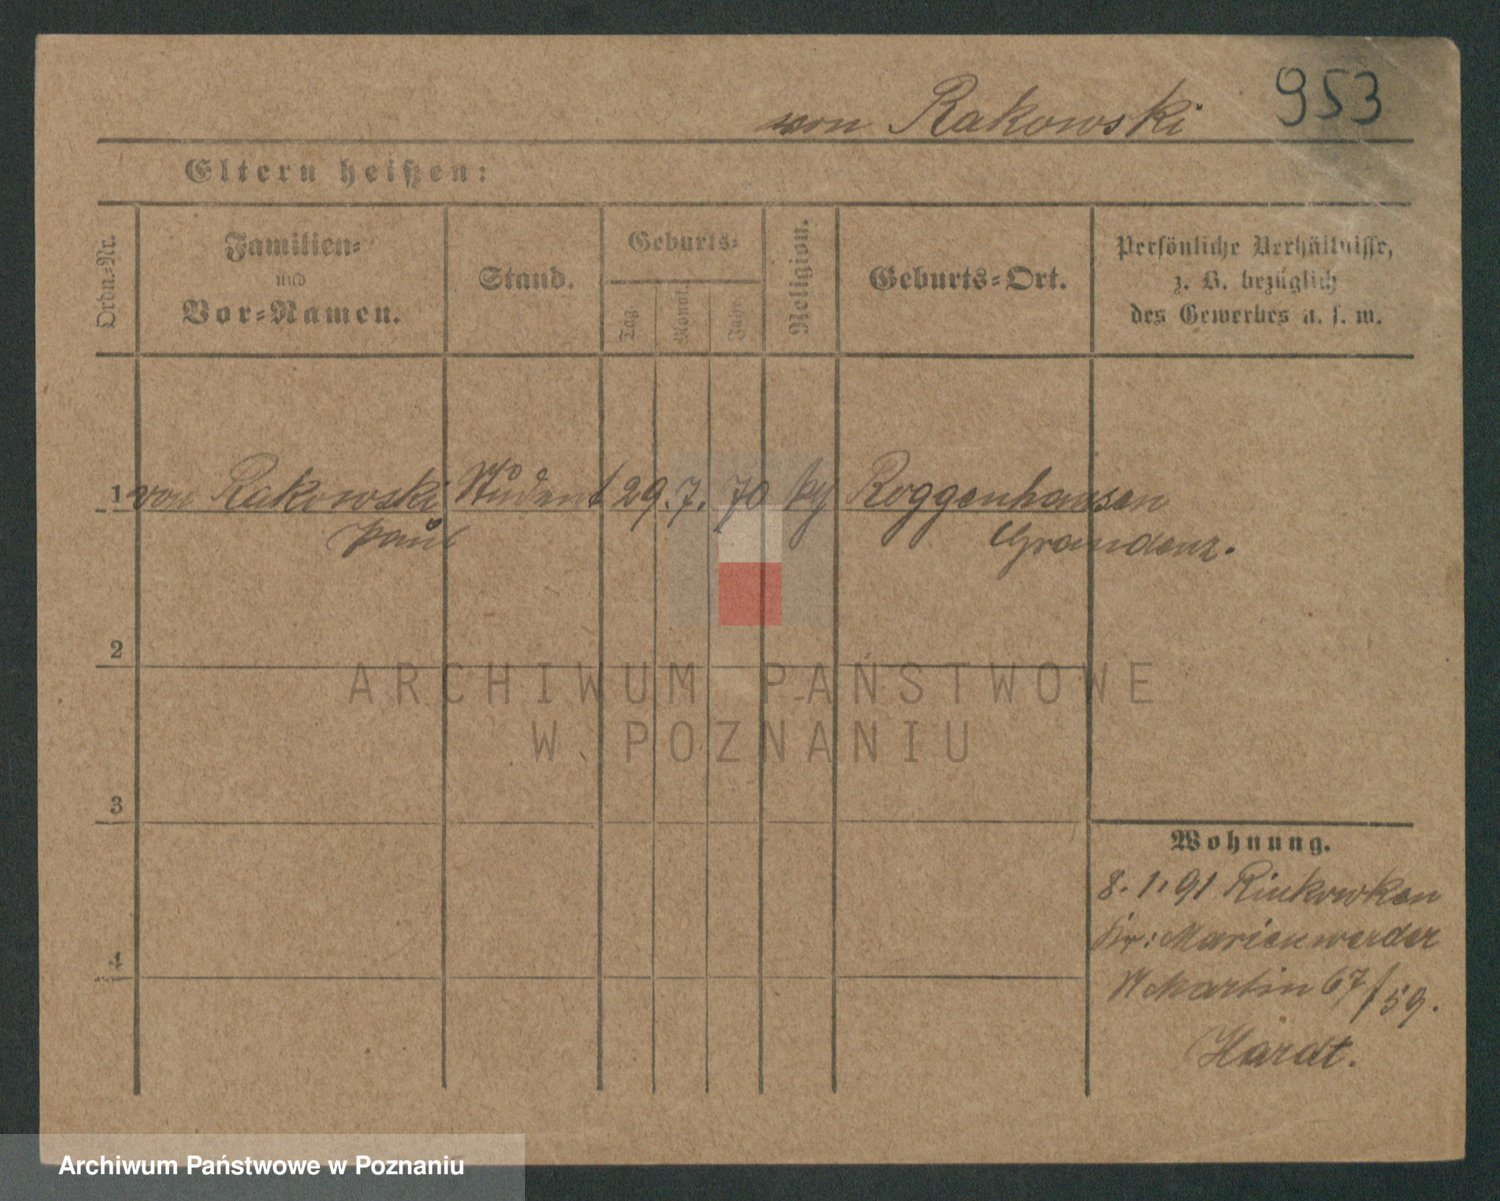 953
von Rakowski
Eltern heißen:
Ordn.-Nr.
Familien-
und
Vor-Namen.
Stand.
Geburts-
Tag
Monat
Jahr
Religion.
Geburts-Ort.
Persönliche Verhältnisse,
z. B. bezüglich
des Gewerbes u. s. w.
1 von Rakowski Student 29. 7. 70 Roggenhausen
Paul Graudenz.
2
3
4
Wohnung.
8. 1. 91 Rinkowken
Kr: Marienwerder
St Martin 67/59.
Hardt.
ARCHIWUM PAŃSTWOWE
W POZNANIU
Archiwum Państwowe w Poznaniu